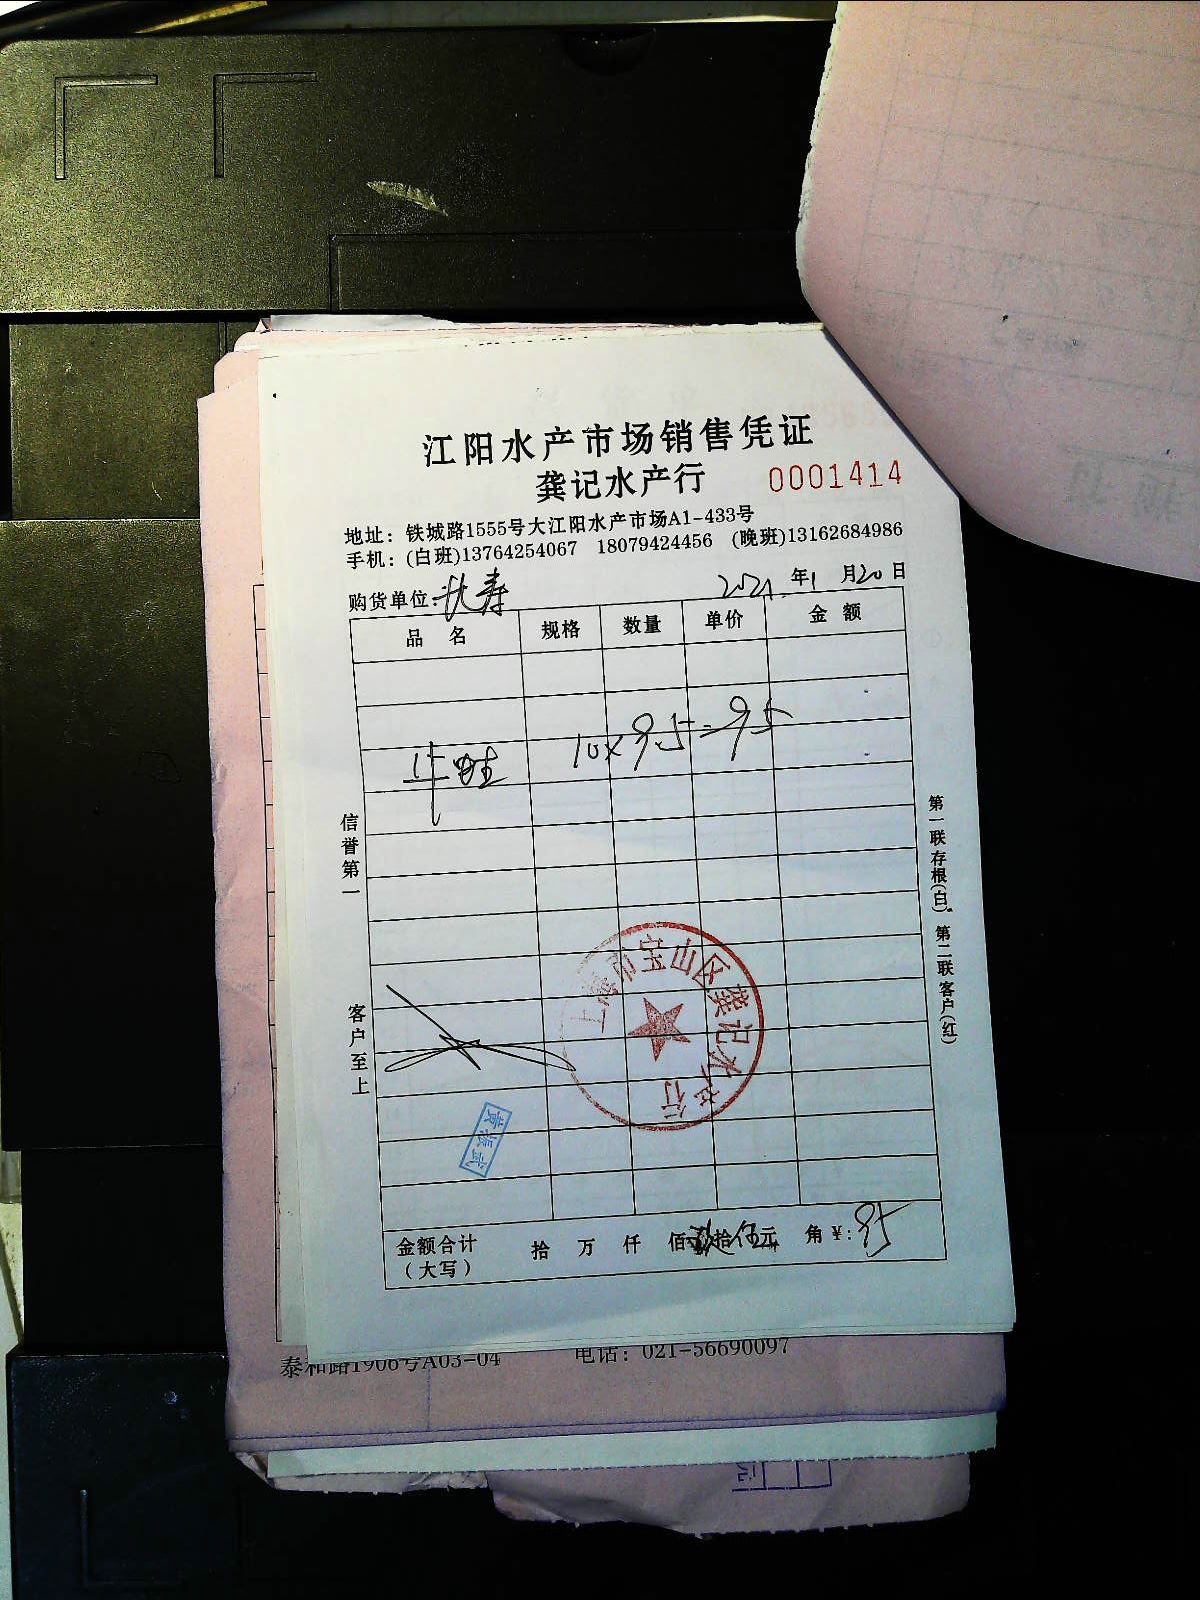 江阳水产市场销售凭证
龚记水产行 0001414
地址：铁城路1555号大江阳水产市场A1-433号
手机：(白班)13764254067 18079424456 (晚班)13162684986
购货单位：长寿 2021年1月20日
品名 规格 数量 单价 金额
牛蛙 10×9.5=95
信誉第一
客户至上
第一联存根(白) 第二联客户(红)
上海市宝山区龚记水产行
黄张武
金额合计 拾 万 仟 佰玖拾伍元 角 ¥:95
(大写)
泰和路1906号A03-04 电话：021-56690097